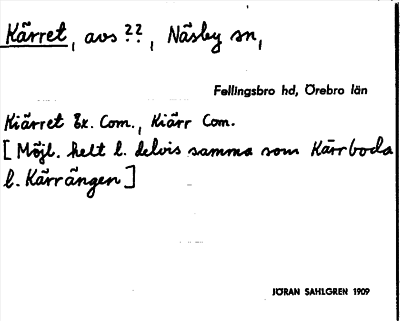 Kärret, avs ??, Näsby sn,
Fellingsbro hd, Örebro län
Kiärret Ex. Com., Kiärr Com.
[Möjl. helt l. delvis samma som Kärrboda
l. Kärrängen]
JÖRAN SAHLGREN 1909